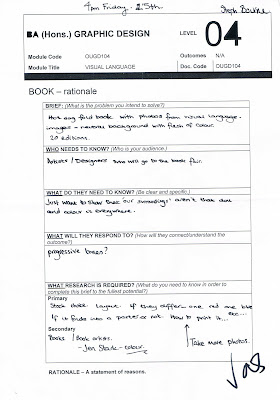 4pm Friday. 25th
Steph Bourne
BA (Hons.) GRAPHIC DESIGN
LEVEL 04
Module Code OUGD104
Outcomes N/A
Module Title VISUAL LANGUAGE
Doc. Code OUGD104
BOOK – rationale
BRIEF: (What is the problem you intend to solve?)
Hot dog fold book with photos from visual language.
images - neutral background with flash of colour
20 editions.
WHO NEEDS TO KNOW? (Who is your audience.)
Artists / Designers who will go to the book fair.
WHAT DO THEY NEED TO KNOW? (Be clear and specific.)
Just want to show that our surroundings aren't that dull
and colour is everywhere.
WHAT WILL THEY RESPOND TO? (How will they connect/understand the
outcome?)
progressive boxes?
WHAT RESEARCH IS REQUIRED? (What do you need to know in order to
complete this brief to the fullest potential?)
Primary
Stock choice. Layout. if they differ... one red one blue
If it folds into a poster or not. How to print it... etc...
Secondary
Books / Book artists.
- Jen Stark - colour.
Take more photos.
RATIONALE – A statement of reasons.